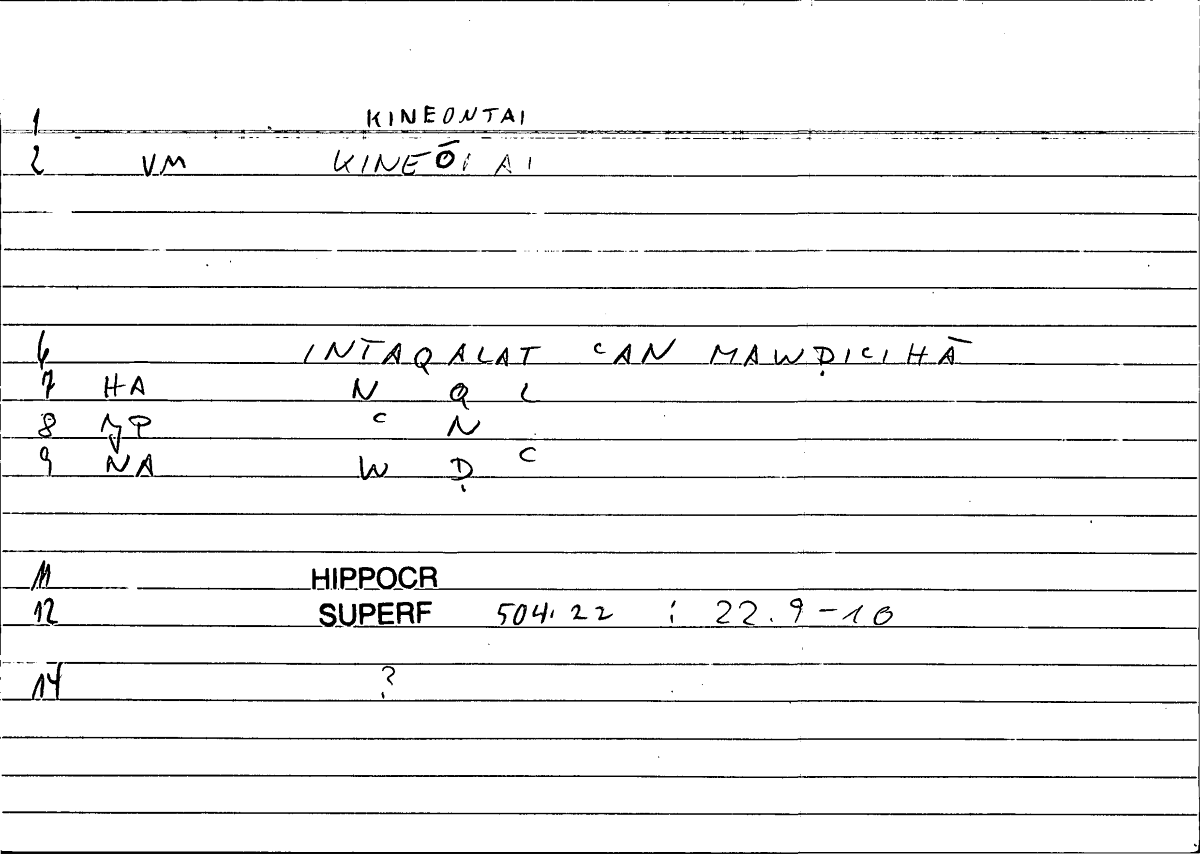 1 KINEONTAI
2 VM KINEŌ
6 INTAQALAT ᶜAN MAWḌIᶜIHĀ
7 HA N Q L
8 ᶜ N
9 NA W Ḍ ᶜ
11 HIPPOCR
12 SUPERF 504.22 : 22.9-10
14 ?